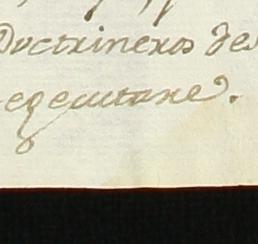 Doctrineros des
egecutare.